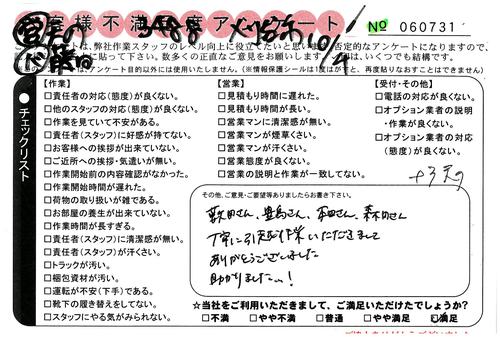 客様不満足度アンケート
№ 060731
は、弊社作業スタッフのレベル向上に役立てたいと思い 否定的なアンケートになりますので、
数多くの正直なご意見をお願いします。 は、いくつでも結構です。
は、アンケート目的以外には使用いたしません。(※情報保護シールは1度はがすと、再度貼りなおすことはできません)
●チェックリスト
【作業】
□責任者の対応(態度)が良くない。
□他のスタッフの対応(態度)が良くない。
□作業を見ていて不安がある。
□責任者(スタッフ)に好感が持てない。
□お客様への挨拶が出来ていない。
□ご近所への挨拶・気遣いが無い。
□作業開始前の内容確認がなかった。
□作業開始時間が遅れた。
□荷物の取り扱いが雑である。
□お部屋の養生が出来ていない。
□作業時間が長すぎる。
□責任者(スタッフ)に清潔感が無い。
□責任者(スタッフ)が汗くさい。
□トラックが汚い。
□梱包資材が汚い。
□運転が不安(下手)である。
□靴下の履き替えをしてない。
□スタッフにやる気がみられない。
【営業】
□見積もり時間に遅れた。
□見積もり時間が長い。
□営業マンに清潔感が無い。
□営業マンが煙草くさい。
□営業マンが汗くさい。
□営業態度が良くない。
□営業の説明と作業が一致してない。
【受付・その他】
□電話の対応が良くない。
□オプション業者の説明
・作業が良くない。
□オプション業者の対応
(態度)が良くない。
その他、ご意見・ご要望等ありましたらお書き下さい。
藪田さん、豊島さん、本田さん、森木さん
丁寧に引越作業いただきまして
ありがとうございました
助かりましたー!
☆当社をご利用いただきまして、ご満足いただけたでしょうか?
□不満 □やや不満 □普通 □やや満足 ☑満足